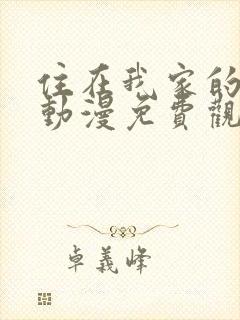 住在我家的
動漫免費觀
卓義峰